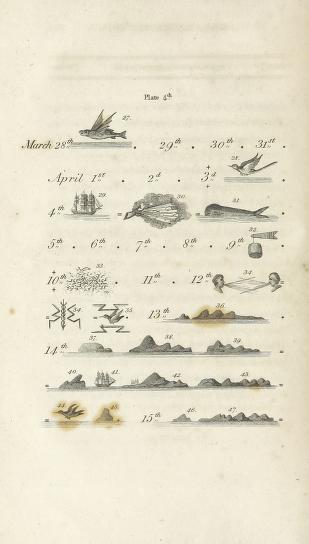 Plate 4th
27.
March 28th . 29th . 30th . 31st .
28.
April 1st . 2d . 3d .
29. 30. 31.
4th = = .
32.
5th . 6th . 7th . 8th . 9th .
33. 34.
10th . 11th . 12th =
34. 35. 36.
= 13th .
37. 38. 39.
14th =
40. 41. 42. 43.
=
44. 45. 46. 47.
= . 15th =